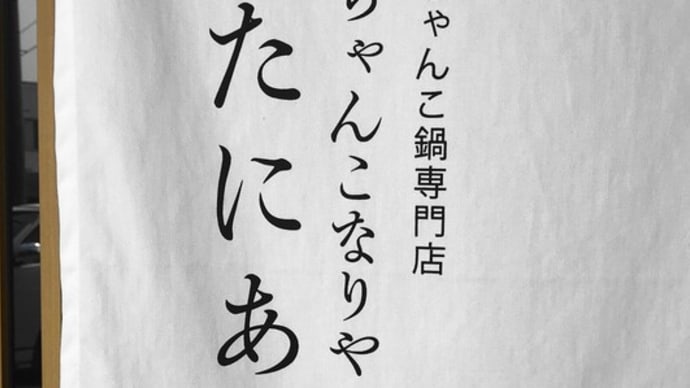 ゃんこ鍋専門店
ちゃんこなりや
たにあ